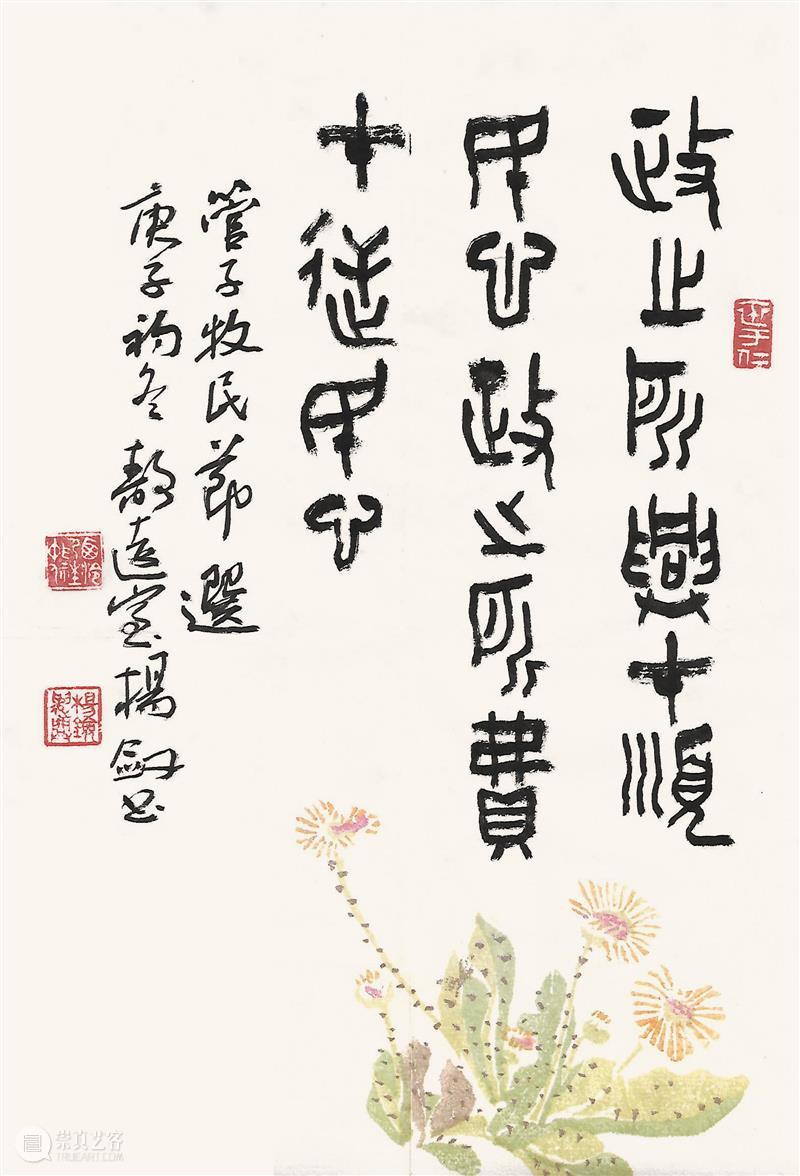 政之所興在順
民心政之所費
在逆民心
管子牧民節選
庚子初冬遠室楊劍書
崇真艺客
WWW.TRUEART.COM